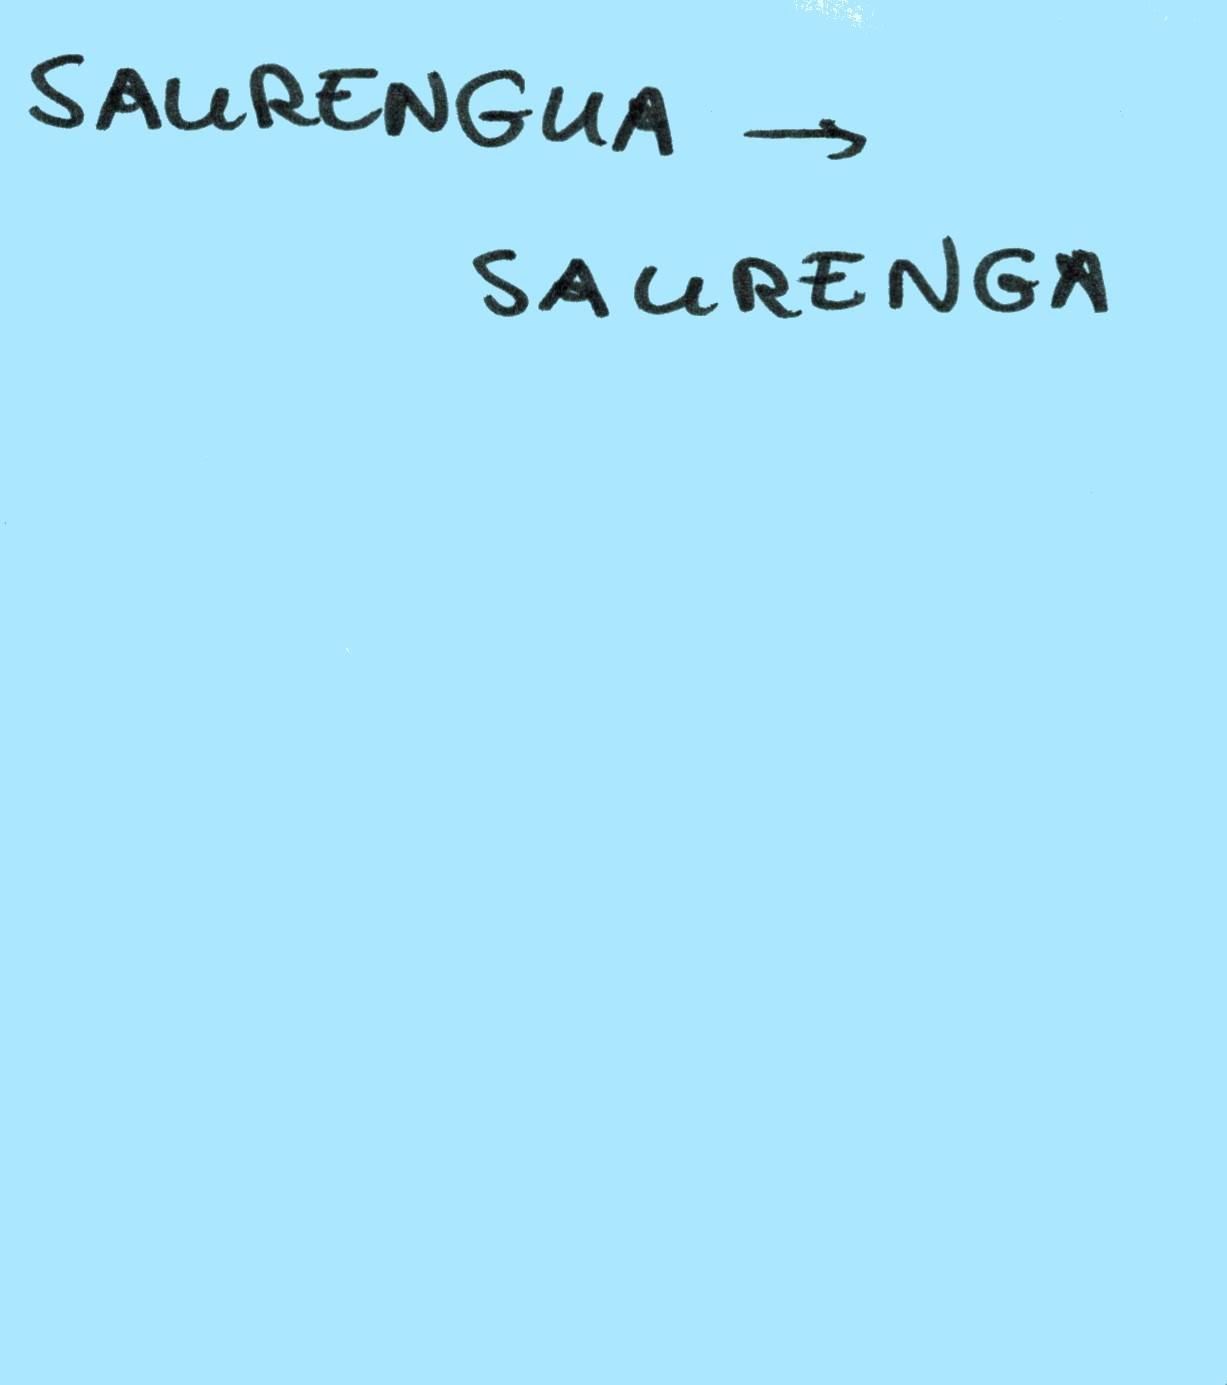 SAURENGUA →
SAURENGA